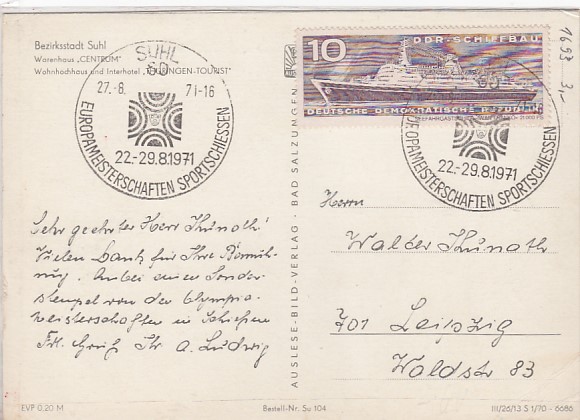 Bezirksstadt Suhl
Warenhaus „CENTRUM"
Wohnhochhaus und Interhotel „THÜRINGEN-TOURIST"
SUHL
60
27.-8. 71-16
EUROPAMEISTERSCHAFTEN SPORTSCHIESSEN
22.-29.8.1971
10
DDR-SCHIFFBAU
DEUTSCHE DEMOKRATISCHE REPUBLIK
60
22.-29.8.1971
EUROPAMEISTERSCHAFTEN SPORTSCHIESSEN
1693 3,-
Sehr geehrter Herr Thunath!
Vielen Dank für Ihre Bemüh-
ung. Anbei einen Sonder-
stempel von der Olympia-
meisterschaften in Schießen
Frl. Gruß Ihr A. Ludwig
AUSLESE-BILD-VERLAG · BAD SALZUNGEN
Herrn
Walter Thunath
701 Leipzig
Waldstr 83
EVP 0.20 M
Bestell-Nr. Su 104
III/26/13 S 1/70 - 6686